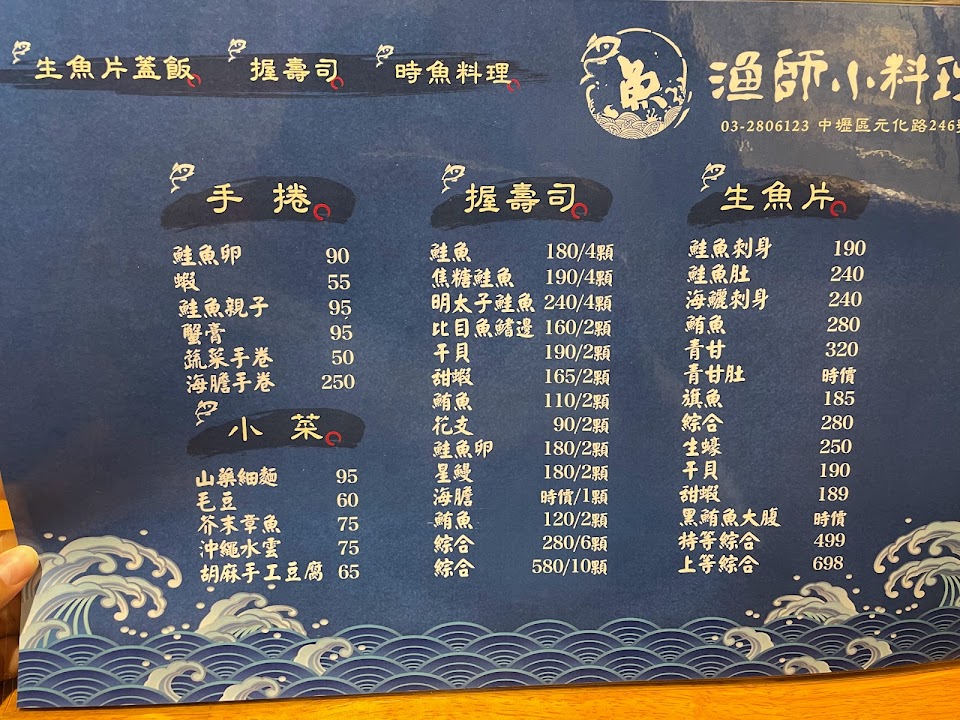 生魚片蓋飯 握壽司 時魚料理
魚
漁師小料理
03-2806123 中壢區元化路246號
手捲
鮭魚卵 90
蝦 55
鮭魚親子 95
蟹膏 95
蔬菜手卷 50
海膽手卷 250
小菜
山藥細麵 95
毛豆 60
芥末章魚 75
沖繩水雲 75
胡麻手工豆腐 65
握壽司
鮭魚 180/4顆
焦糖鮭魚 190/4顆
明太子鮭魚 240/4顆
比目魚鰭邊 160/2顆
干貝 190/2顆
甜蝦 165/2顆
鮪魚 110/2顆
花支 90/2顆
鮭魚卵 180/2顆
星鰻 180/2顆
海膽 時價/1顆
鮪魚 120/2顆
綜合 280/6顆
綜合 580/10顆
生魚片
鮭魚刺身 190
鮭魚肚 240
海鱺刺身 240
鮪魚 280
青甘 320
青甘肚 時價
旗魚 185
綜合 280
生蠔 250
干貝 190
甜蝦 189
黑鮪魚大腹 時價
持等綜合 499
上等綜合 698